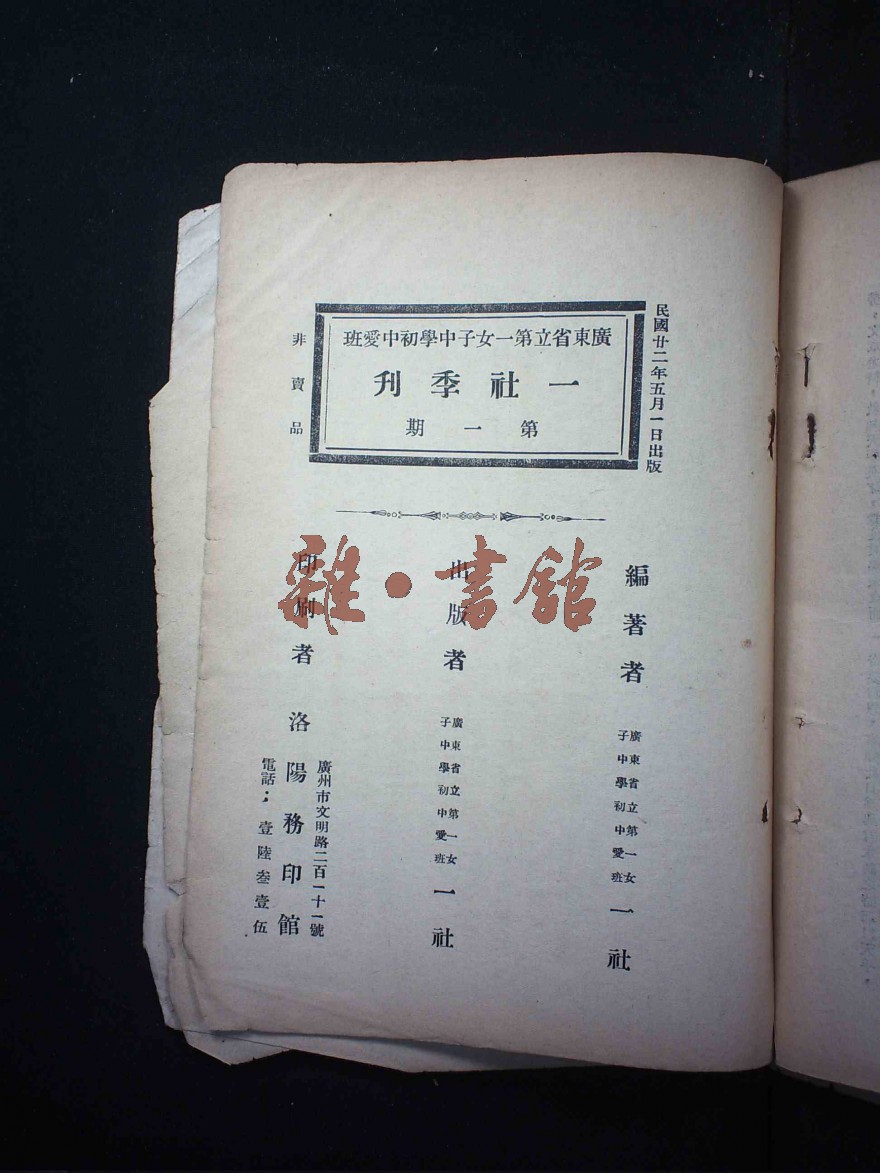 民國廿二年五月一日出版
廣東省立第一女子中學初中愛班
一社季刊
第一期
非賣品
編著者
廣東省立第一女
子中學初中愛班
一社
出版者
廣東省立第一女
子中學初中愛班
一社
印刷者
洛陽務印館
廣州市文明路二百一十一號
電話：壹陸叁壹伍
雜·書館